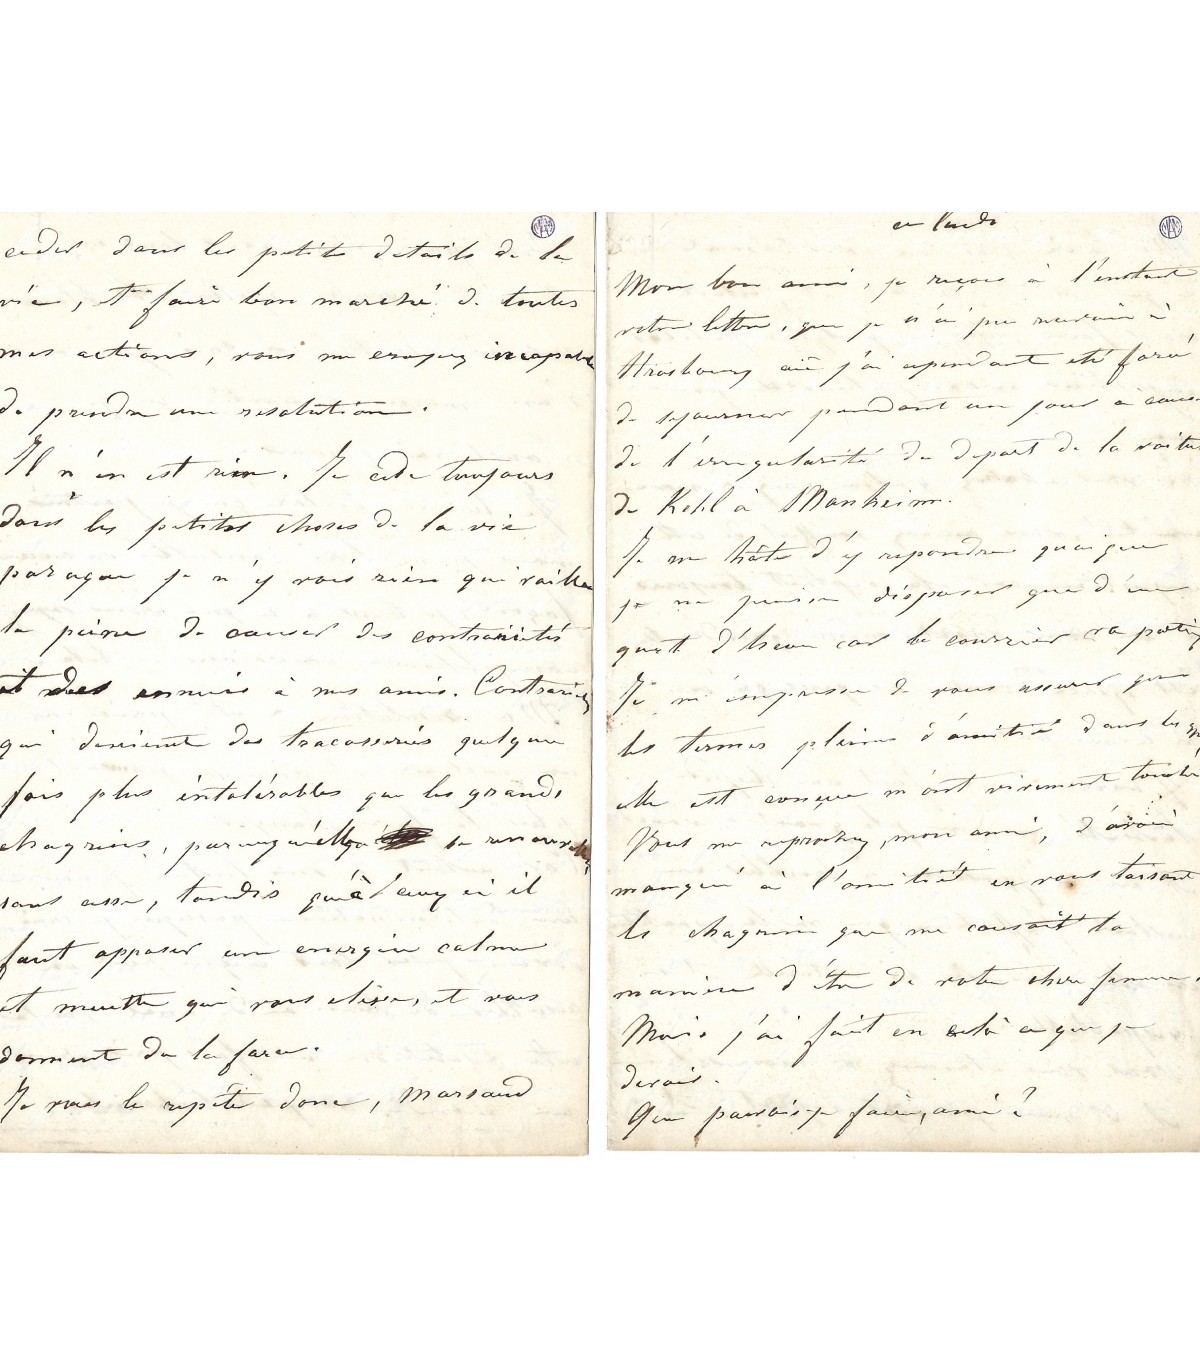 céder dans les petits details de la
vie, et faire bon marché de toutes
mes actions, vous me croyez incapable
de prendre une resolution.
Il n'en est rien. Je cède toujours
dans les petites choses de la vie
parceque je n'y vois rien qui vaille
la peine de causer des contrariétés
et des ennuis à mes amis. Contrariétés
qui devienent des tracasseries quelque
fois plus intolérables que les grands
chagrins, parcequ'elles se renouvellent
sans cesse, tandis qu'à ceux ci il
faut opposer une energie calme
et muette qui vous elève, et vous
donnent de la force.
Je vous le repète donc, Marsaud
ce lundi
Mon bon ami, je reçois à l'instant
votre lettre, que je n'ai pu recevoir à
Strasbourg où j'ai cependant été forcé
de sejourner pendant un jour à cause
de l'irregularité du depart de la voiture
de Kehl à Manheim.
Je me hâte d'y repondre quoique
je ne puisse disposer que d'un
quart d'heure car le courrier va partir
Je m'empresse de vous assurer que
les termes pleins d'amitié dans les
elle est conçue m'ont vivement touché
Vous me reprochez, mon ami, d'avoir
manqué à l'amitié en vous taisant
le chagrin que me causait la
manière d'être de votre chère femme.
Mais j'ai fait en celà ce que je
devais.
Que pouvais-je faire, ami?